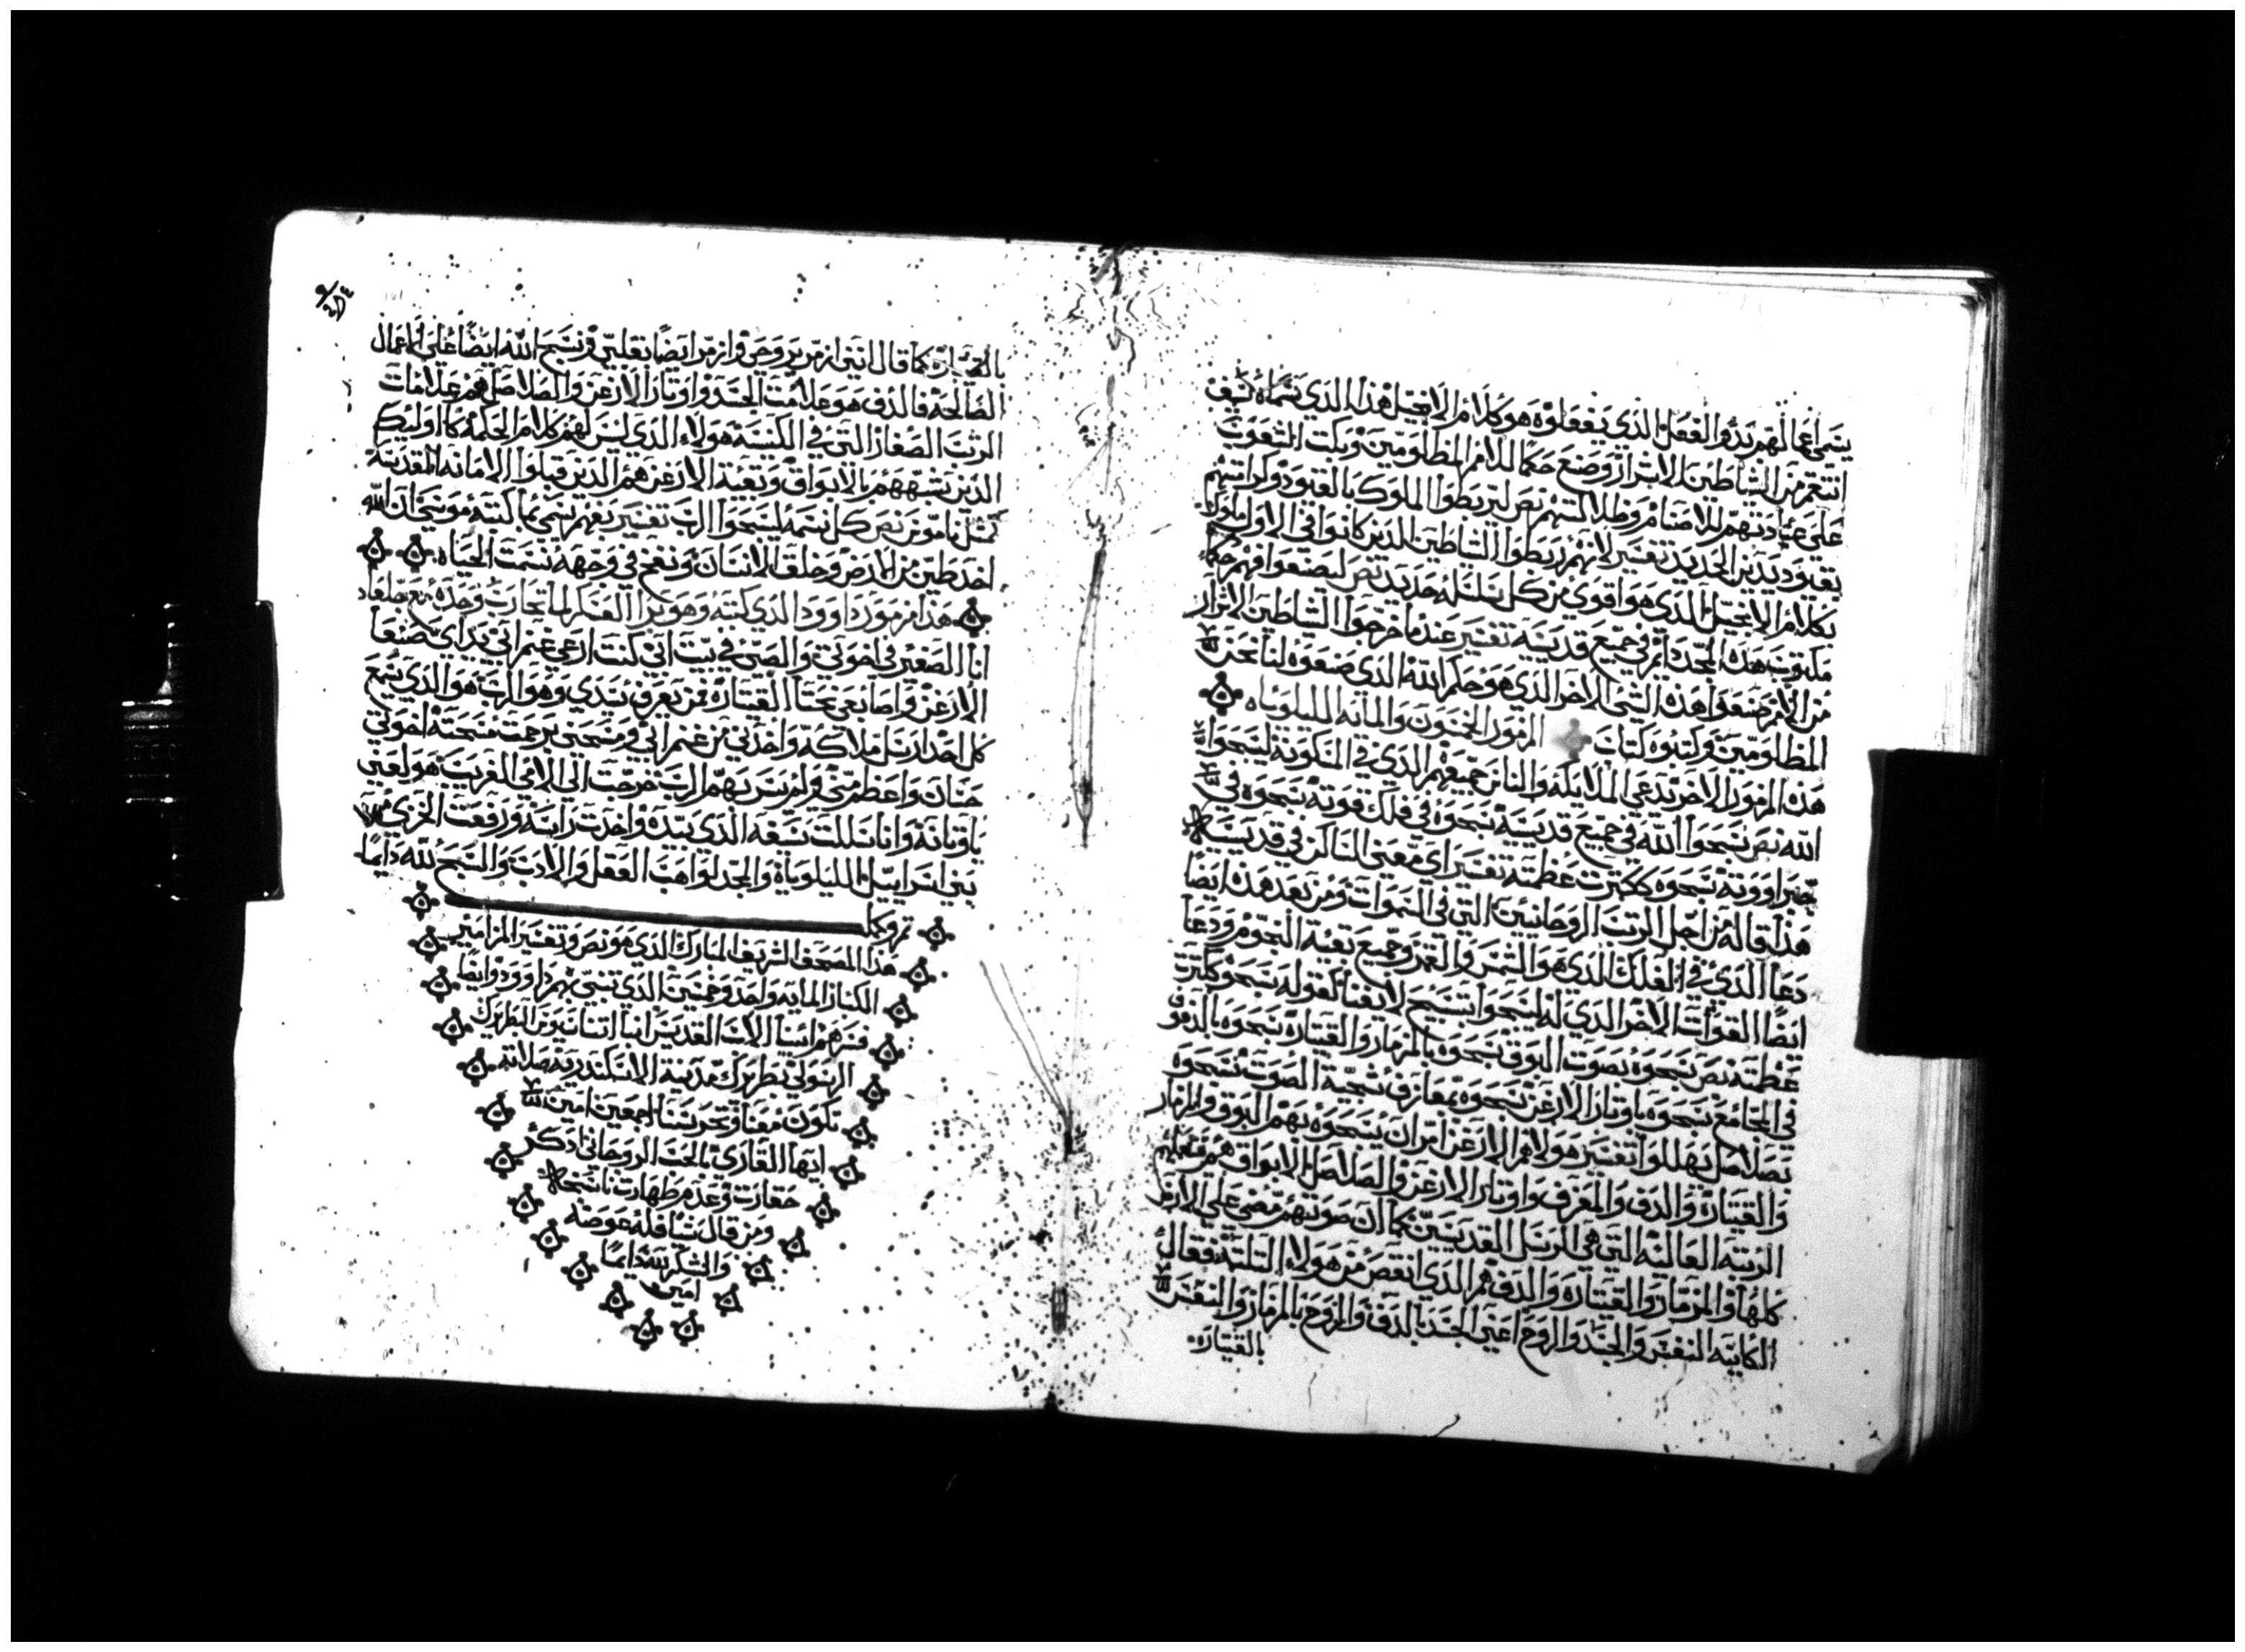 يسما اعمالهم بدو الفعل الذي يفعلوه هو كلام الانجيل هذا الذي نسماه كيف
انتقم من الشاطين الاشرار وضع حكما للامم المظلومين وبكت الشعوب
على عبادتهم للاصنام وظلالتهم نص ليربطوا الملوك بالقيود واشرافهم
بقيود يدين الحديد تفسير لانهم ربطوا الشاطين الذين كانوا في الاول ملوك
بكلام الانجيل الذي هو اقوى من كل سلسله حديد نص ليصنعوا فيهم حكما
مكتوب هذه المجد دايم في جميع قديسيه تفسير عندما اخرجوا الشاطين الاشرار
من الامم صنعوا هذه الشى الاخر الذي هو حكم الله الذي صنعوه لنا نحن
المظلومين وكتبوه كتاب المزمور الخمسون والمايه الليلوياه
هذه المزمور الاخر تدعي الملايكه والناس جميعهم الذي في المسكونة ليسبحوا
الله نص سبحوا الله في جميع قديسيه سبحوه في فلك قوته سبحوه في
جبراووته سبحوه ككثرت عظمته تفسير اي معنى الساكن في قديسيه
هذا قاله من اجل الرتب الروحانيين التي في السموات ومن بعد هذه ايضا
دعا الذي في الفلك الذي هو الشمس والقمر وجميع بقية النجوم ودعا
ايضا القوات الاخر الذي له ليسبحوا تسبيح لا يفنا كقوله سبحوه ككثرت
عظمته نص سبحوه بصوت البوق سبحوه بالمزمار والقيتارة سبحوه بالدفوف
في المجامع سبحوه باوتار الارغن سبحوه بمعازف شجية الصوت سبحوه
بصلاصل يهللوا تفسير هولاهم الارغن امر ان يسبحوه بهم البوق والمزمار
والقيتارة والدف والمعزف واوتار الارغن والصلاصل الابواق هم معلمين
الرتبه العاليه التي هي الرسل القديسين كما ان صوتهم مضى على الارض
كلها والمزمار والقيتاره والدف هم الذي انقص من هولاء الثلثة فقال
الكاينه النفس والجسد والروح اعني الجسد بالدف والروح بالمزمار والنفس
بالقيتارة
كما قال انني ازمر بروحي وازمر ايضا بقلبي ونسبح الله ايضا على الاعمال
الصالحة فالدف هو علامت الجسد واوتار الارغن والصلاصل هم علامات
الرتب الصغار التي في الكنيسة هولاء الذي ليس لهم كلام الحكمة كاوليك
الذين نشبههم بالابواق وبقية الارغن هم الذين قبلوا الامانه المقدسه
كمثل ناموس نص كل نسمه ليسبحوا الرب تفسير يعني شي مما كتبه موسى ان الله
اخد طين من الارض وخلق الانسان ونفخ في وجهه نسمت الحياه
هذا مزمور داوود الذي كتبه وهو برا العسكر لما تحارب وحده مع جلعاد
انا الصغير في اخوتي والصبي في بيت ابي كنت ارعي غنم ابي يداي صنعا
الارغن واصابعي نحتا القيتارة فمن يعرف سيدي وهو الرب هو الذي يسمع
كل احد ارسل ملاكه واخدني من غنم ابي ومسحني برحمت مسحته اخوتي
حسان واعظم مني ولم يسر بهم الرب خرجت الى الامي الغريب هو لعني
باوثانه وانا سللت سيفه الذي بيده واخدت راسه ورفعت الخزي من
بني اسراييل الليلوياة والمجد لواهب العقل والادب والسبح لله دايما
تم وكمل
هذا المصحف الشريف المبارك الذي هو نص وتفسير المزامير
الكبار المايه واحد وخمسين الذي تنبي بهم داوود وايضا
فسرهم ابينا الاب القديس انبا اتناسيوس البطريرك
الرسولي بطريرك مدينة الاسكندرية صلاته
تكون معنا وتحرسنا اجمعين امين
ايها القاري بالحب الروحاني ادكر
حقارت وعدم طهارت ناسخه
ومن قال شيا فله عوضه
والشكر لله دايما
امين